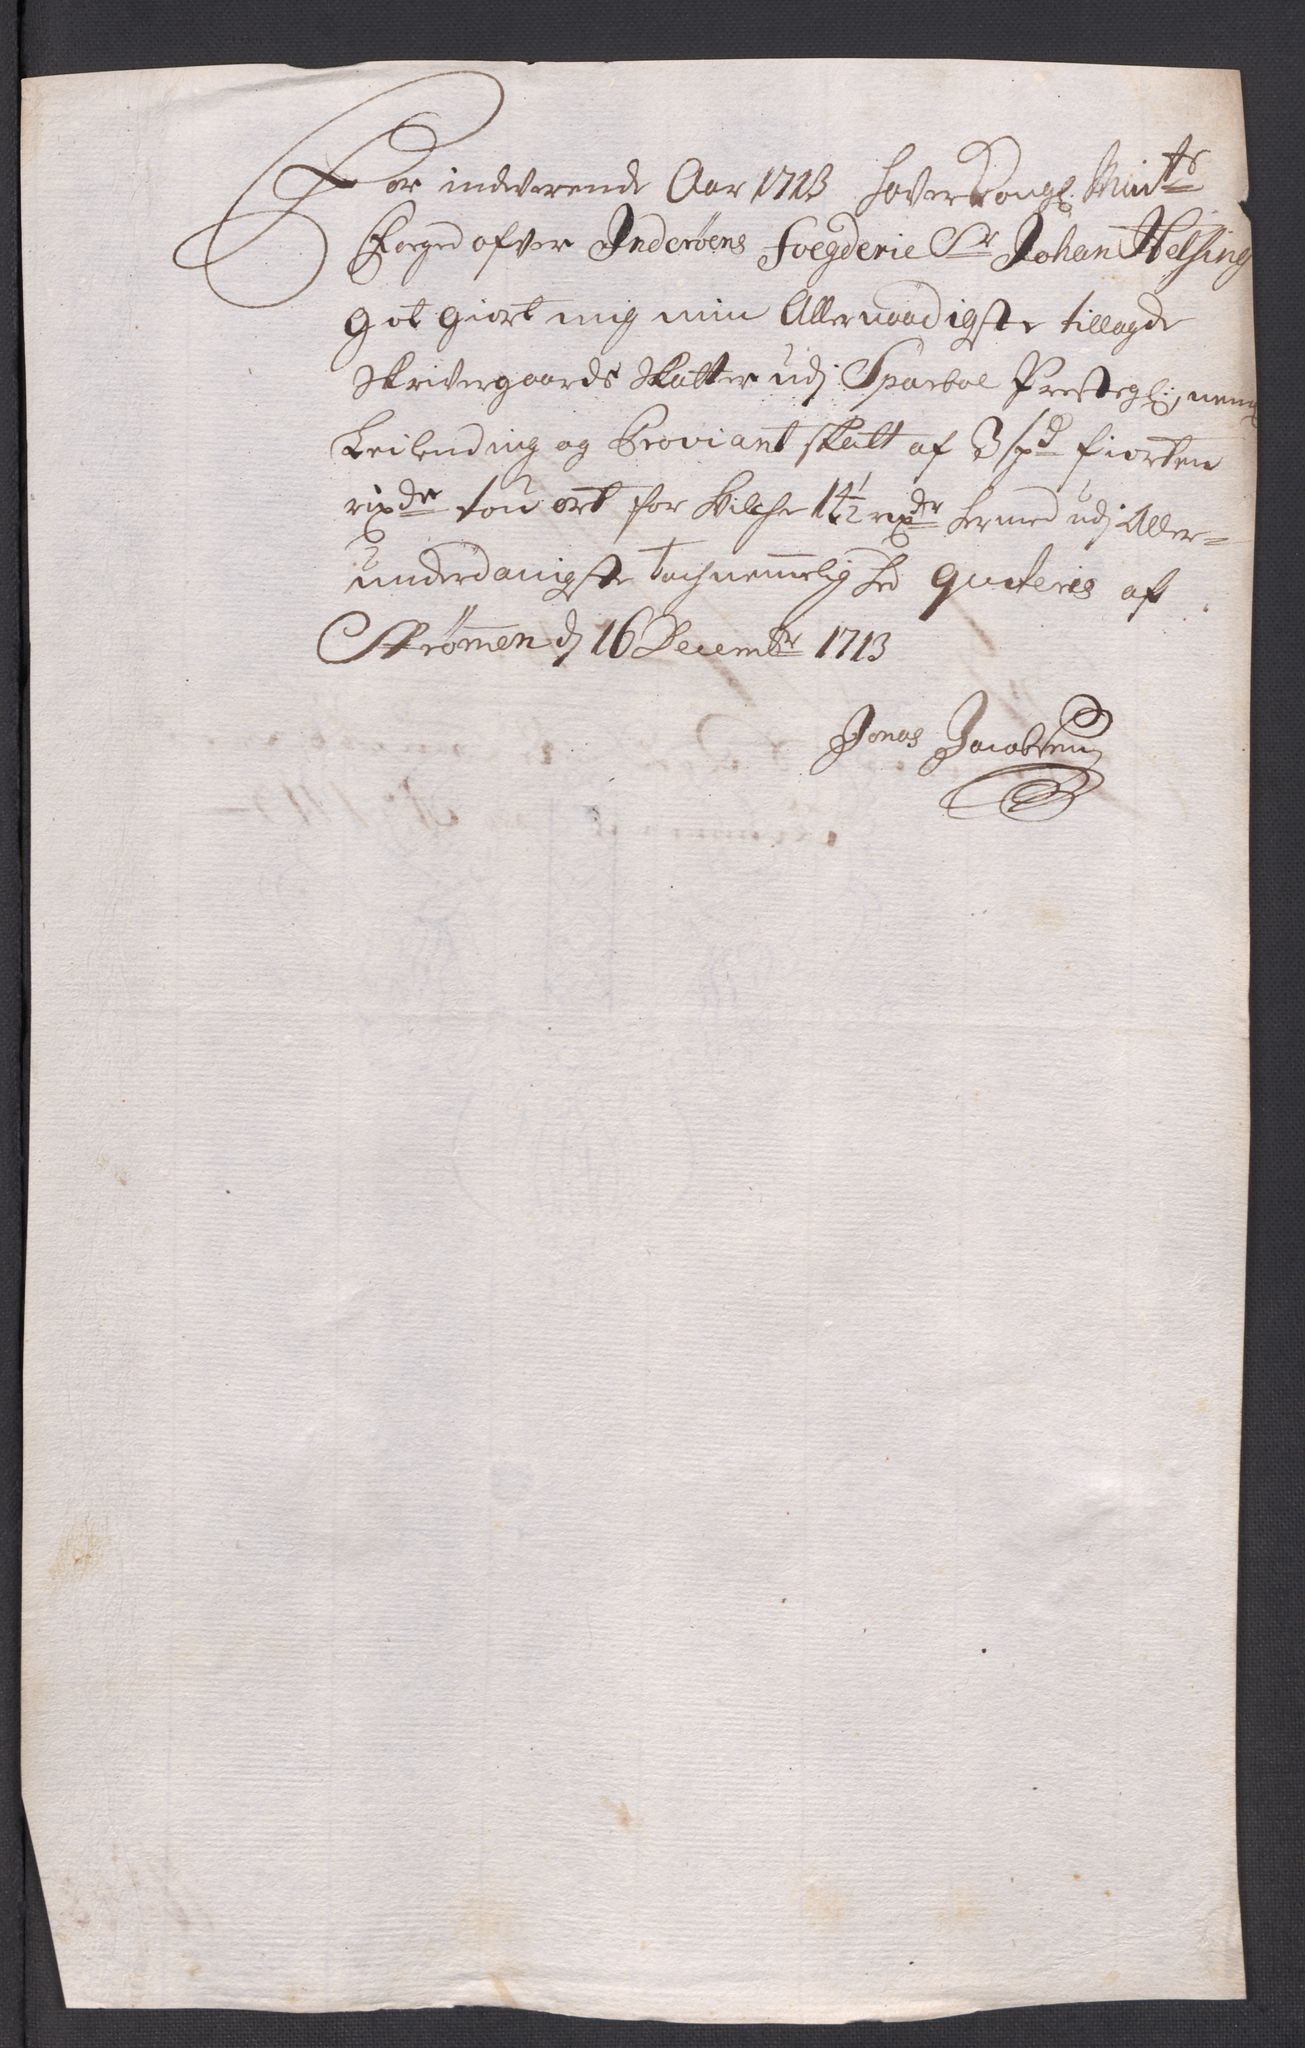 For indverende Aar 1713 haver Kongl. Maits
Foeged ofver Inderöens Foegderie Sr Johan Helsing
got giort mig min Allernaadigste tillagde
Skrivergaards Skatter udj Sparboe Prestegl:, neml
Leilending og Proviant skatt af 3 spd fiorten
rixdr tou ort for hvilche 14½ rixdr hermed udj Aller=
underdanigste tachnemmelighed quiteris af
Strömen dj 16 Decembr 1713
Jonas Jacobsen